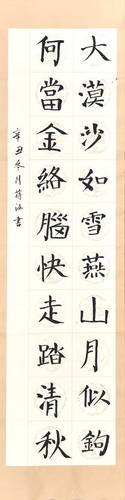 大漠沙如雪燕山月似鉤
何當金絡腦快走踏清秋
辛丑冬月蔣泓書